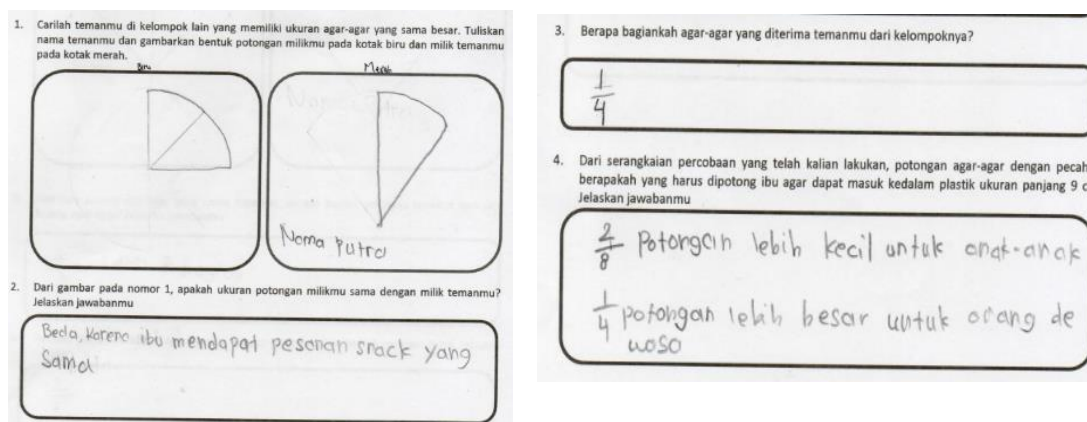 1. Carilah temanmu di kelompok lain yang memiliki ukuran agar-agar yang sama besar. Tuliskan
nama temanmu dan gambarkan bentuk potongan milikmu pada kotak biru dan milik temanmu
pada kotak merah.
Biru
Merah
Nama Putra
2. Dari gambar pada nomor 1, apakah ukuran potongan milikmu sama dengan milik temanmu?
Jelaskan jawabanmu
Beda, karena ibu mendapat pesanan snack yang
Sama
3. Berapa bagiankah agar-agar yang diterima temanmu dari kelompoknya?
1/4
4. Dari serangkaian percobaan yang telah kalian lakukan, potongan agar-agar dengan pecah
berapakah yang harus dipotong ibu agar dapat masuk kedalam plastik ukuran panjang 9 c
Jelaskan jawabanmu
2/8 Potongan lebih kecil untuk anak-anak
1/4 potongan lebih besar untuk orang de
wasa